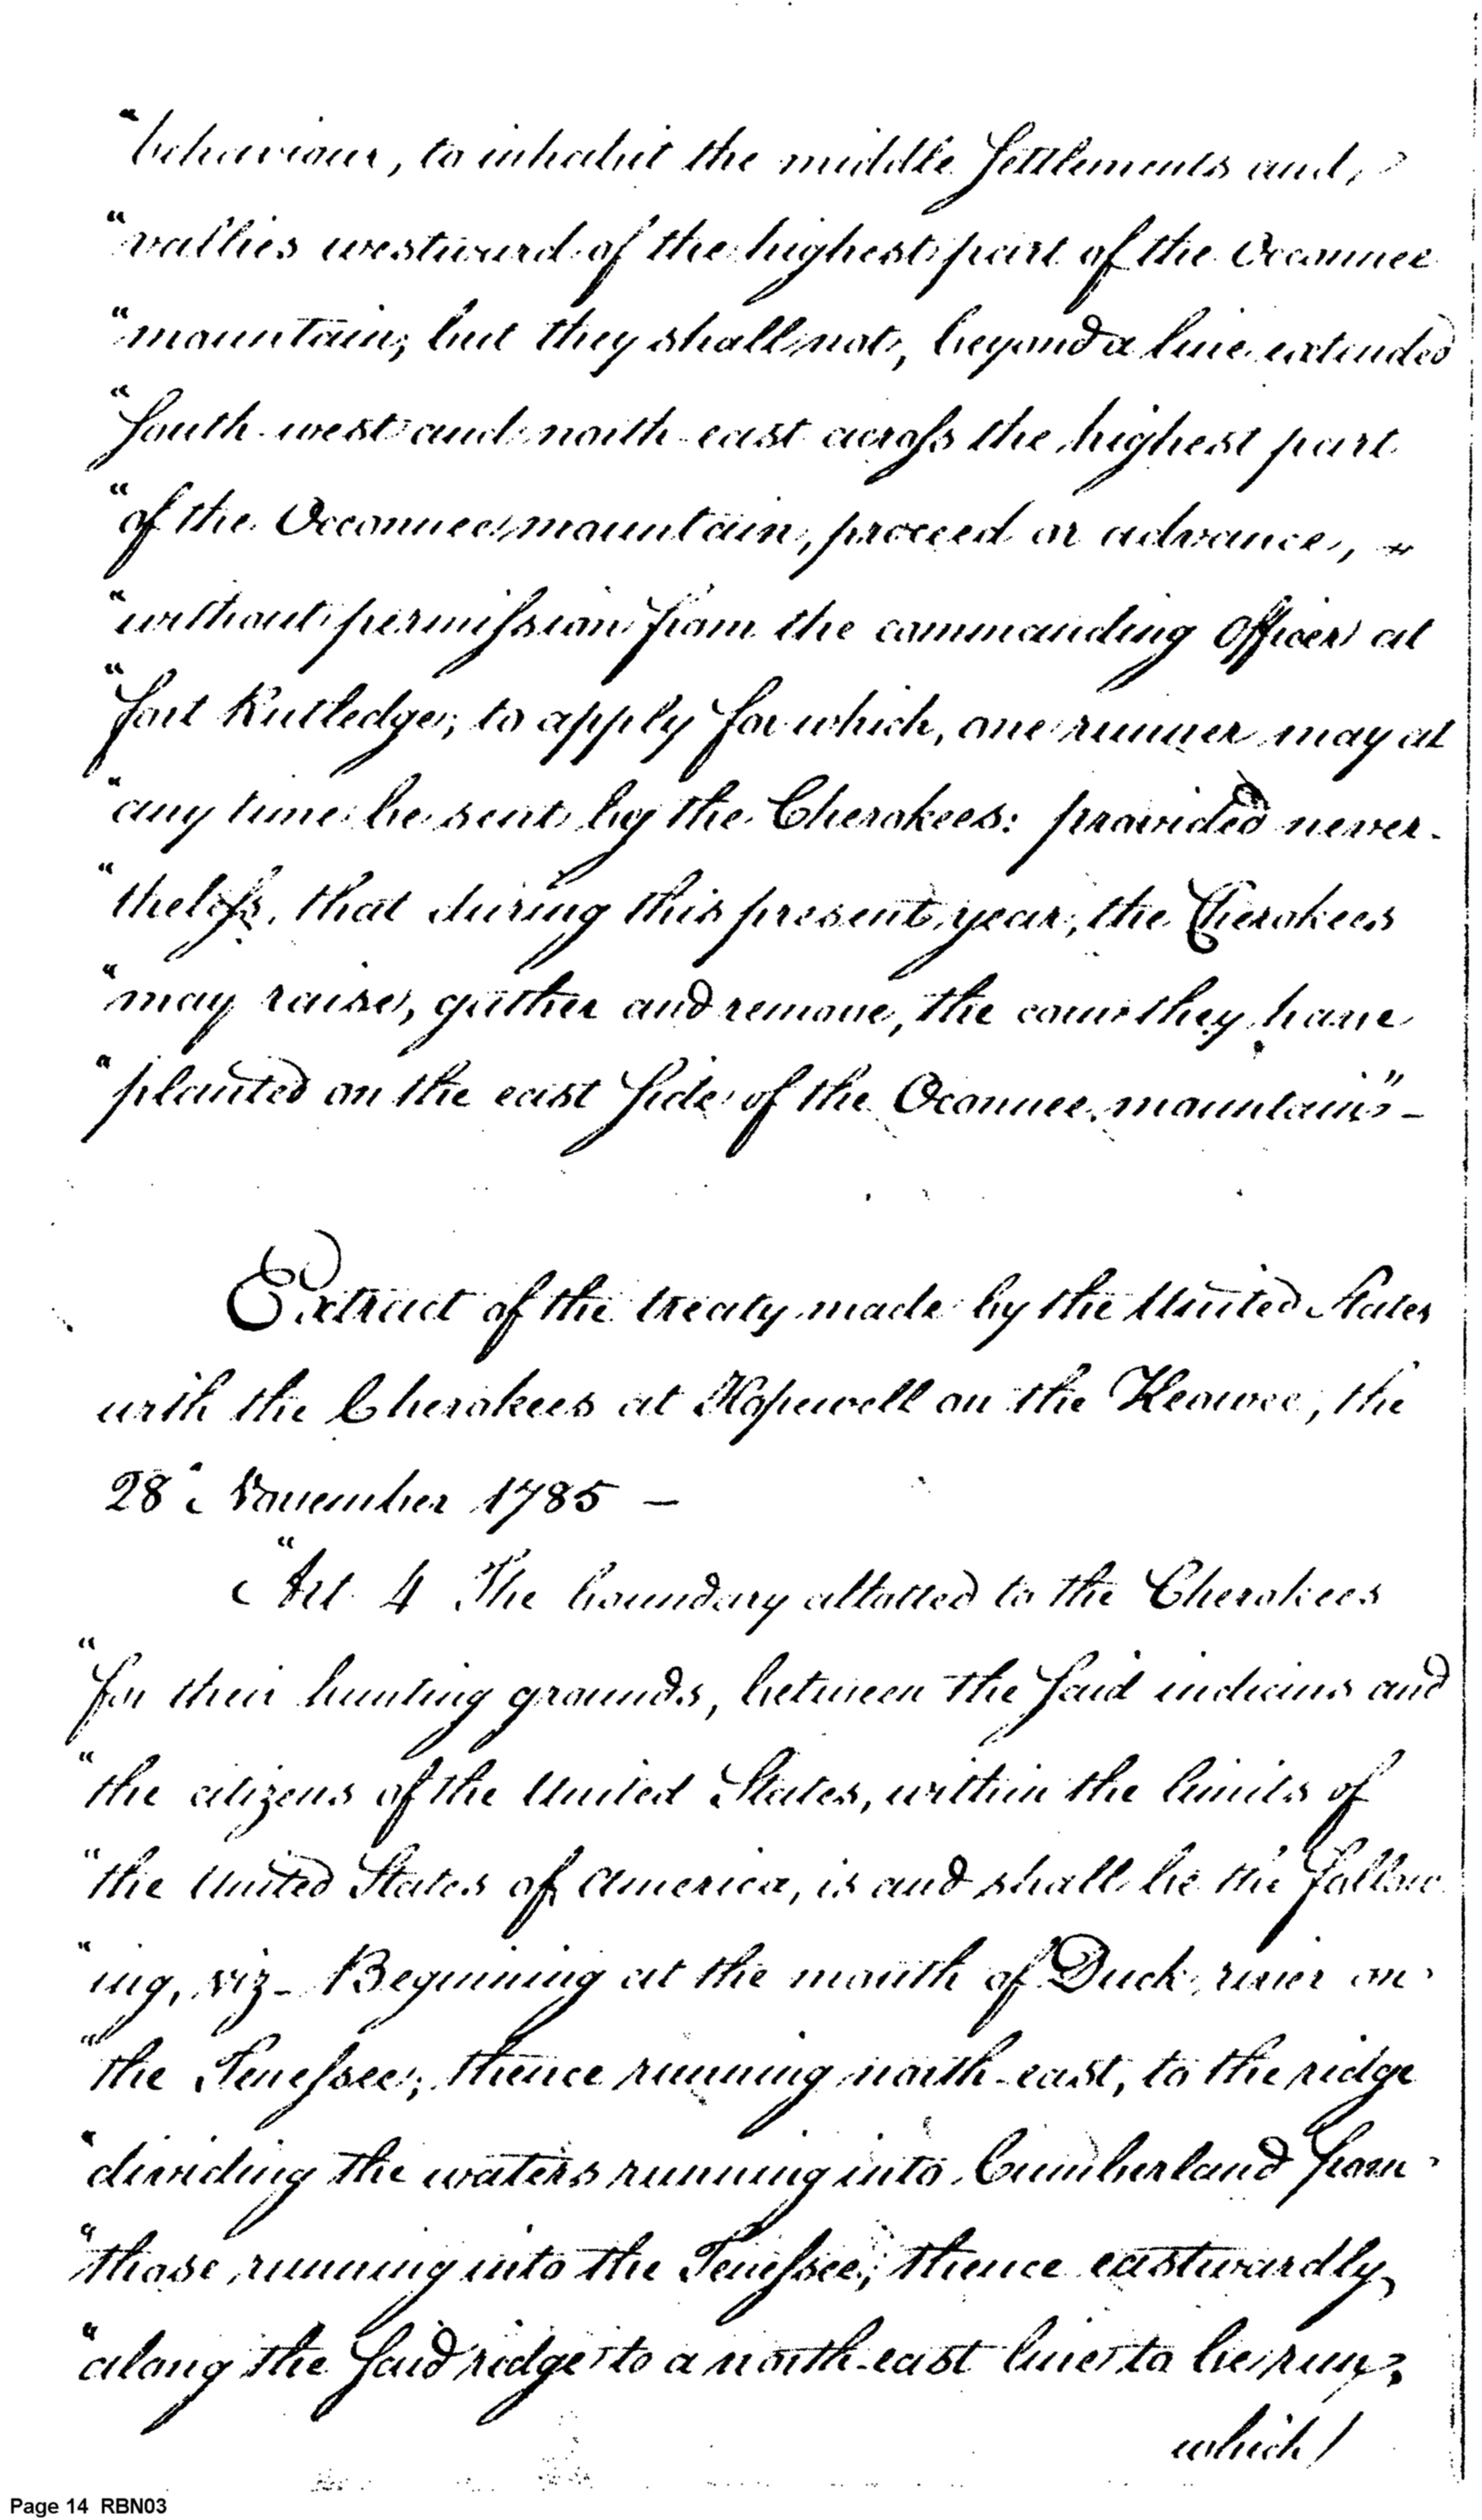 "behaviour, to inhabit the middle Settlements and
"vallies westward of the highest part of the Occonnee
"mountain; but they shall not, beyond a line extended
"South-west and north-east across the highest part
"of the Occonnee mountain, proceed or advance,
"without permission from the commanding Officer at
"fort Rutledge; to apply for which, one runner may at
"any time be sent by the Cherokees: provided never-
"theless, that during this present year, the Cherokees
"may raise, gather and remove, the corn they have
"planted on the east Side of the Oconnee mountain" -
Extract of the treaty made by the United States
with the Cherokees at Hopewell on the Keowee, the
28th November 1785 —
"Art. 4 The boundary allotted to the Cherokees
"for their hunting grounds, between the Said indians and
"the citizens of the United States, within the limits of
"the United States of America, is and shall be the follow
"ing, viz - Beginning at the mouth of Duck river on
"the Tenessee; thence running north-east, to the ridge
"dividing the waters running into Cumberland from
"those running into the Tenessee; thence eastwardly
"along the Said ridge to a north-east line to be run,
which /
Page 14 RBN03